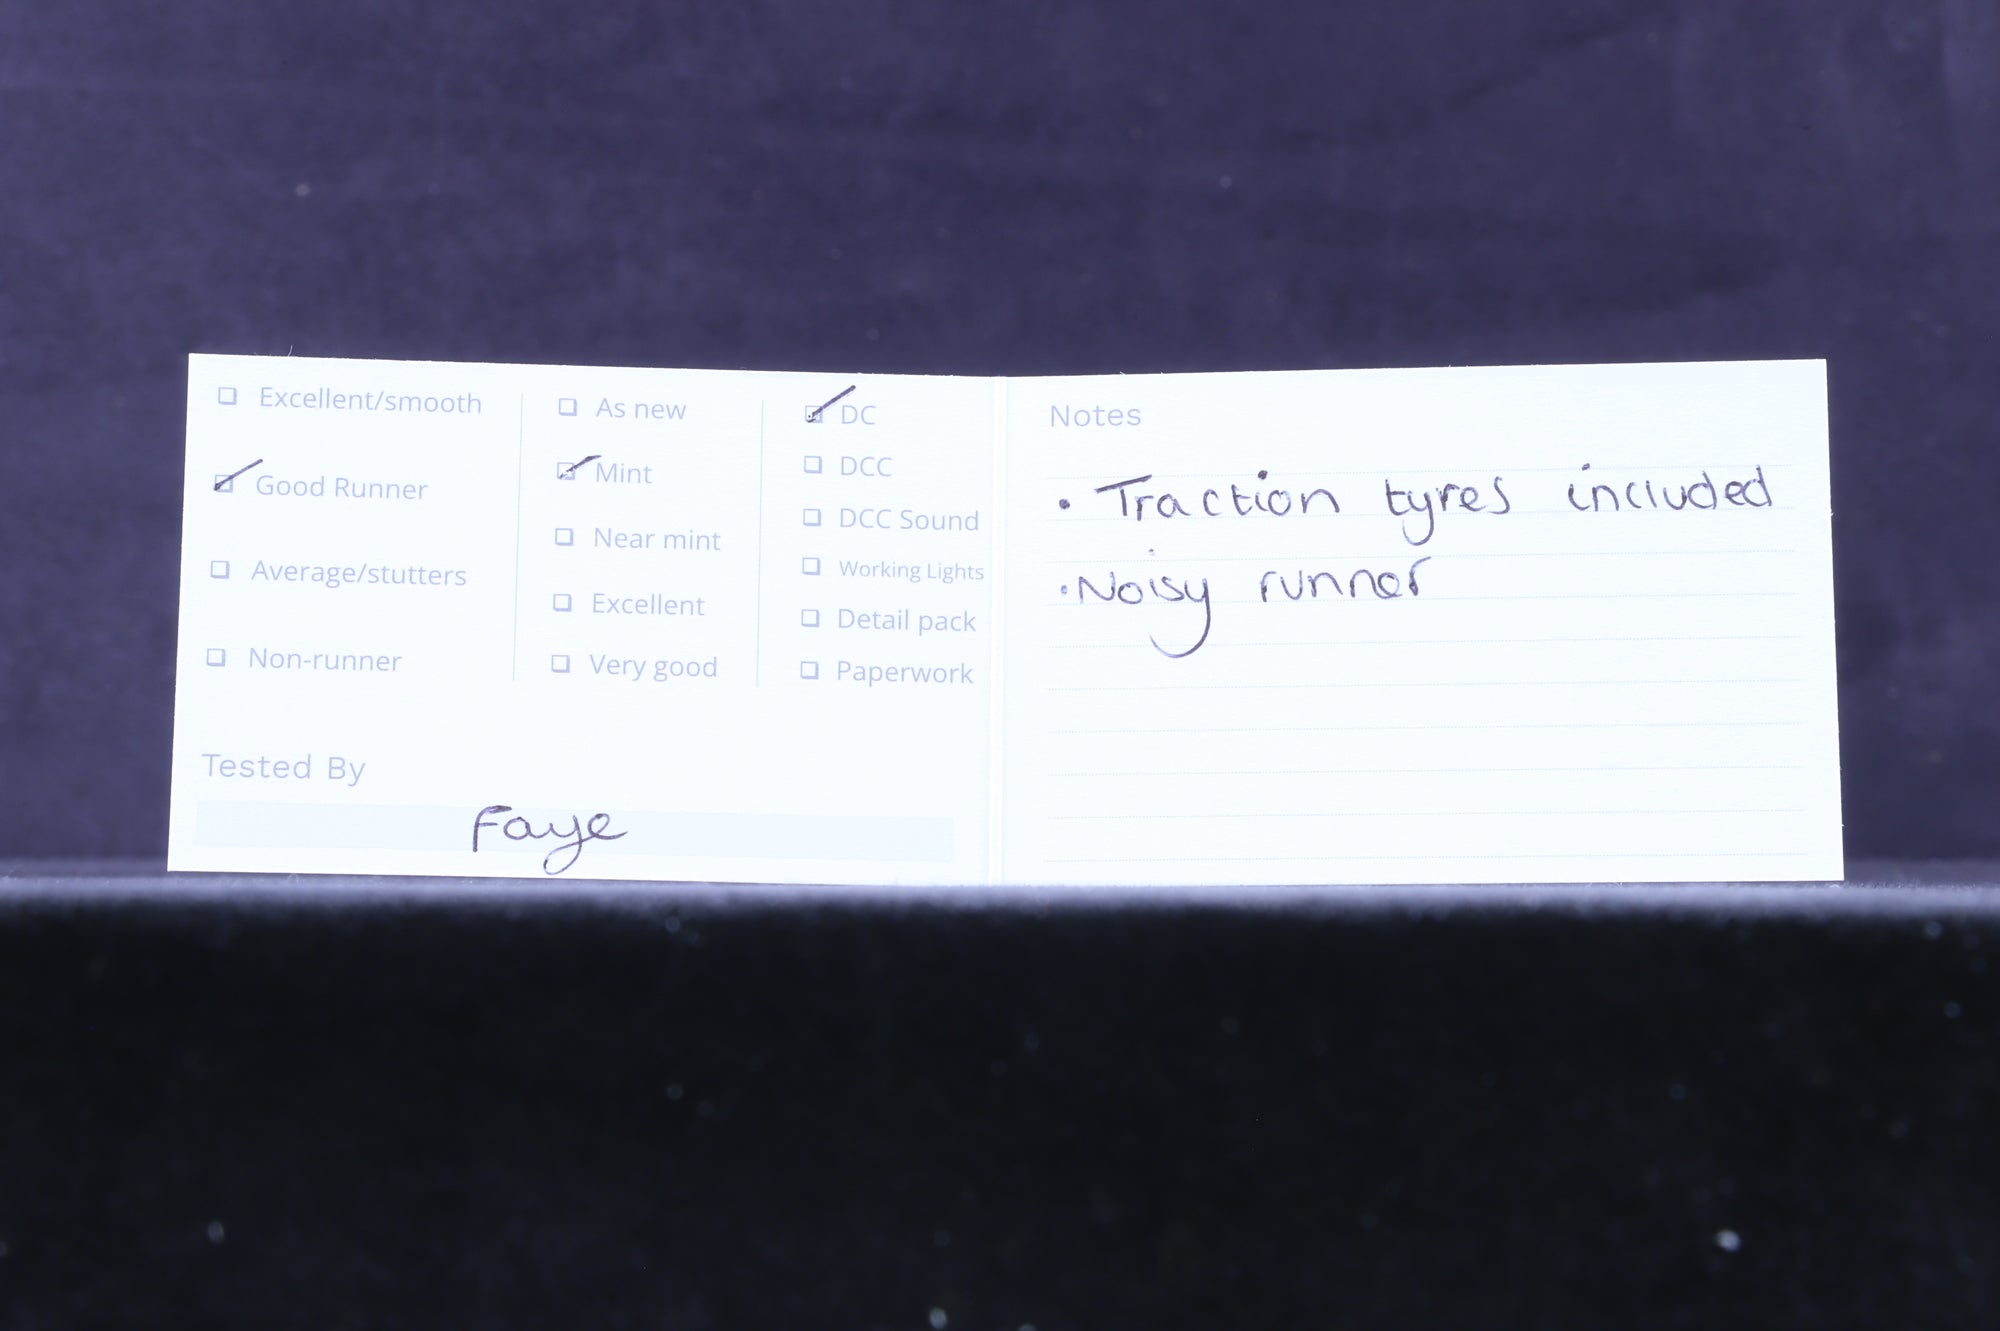 ☐ Excellent/smooth
☑ Good Runner
☐ Average/stutters
☐ Non-runner
☐ As new
☑ Mint
☐ Near mint
☐ Excellent
☐ Very good
☑ DC
☐ DCC
☐ DCC Sound
☐ Working Lights
☐ Detail pack
☐ Paperwork
Tested By
Faye
Notes
• Traction tyres included
• Noisy runner